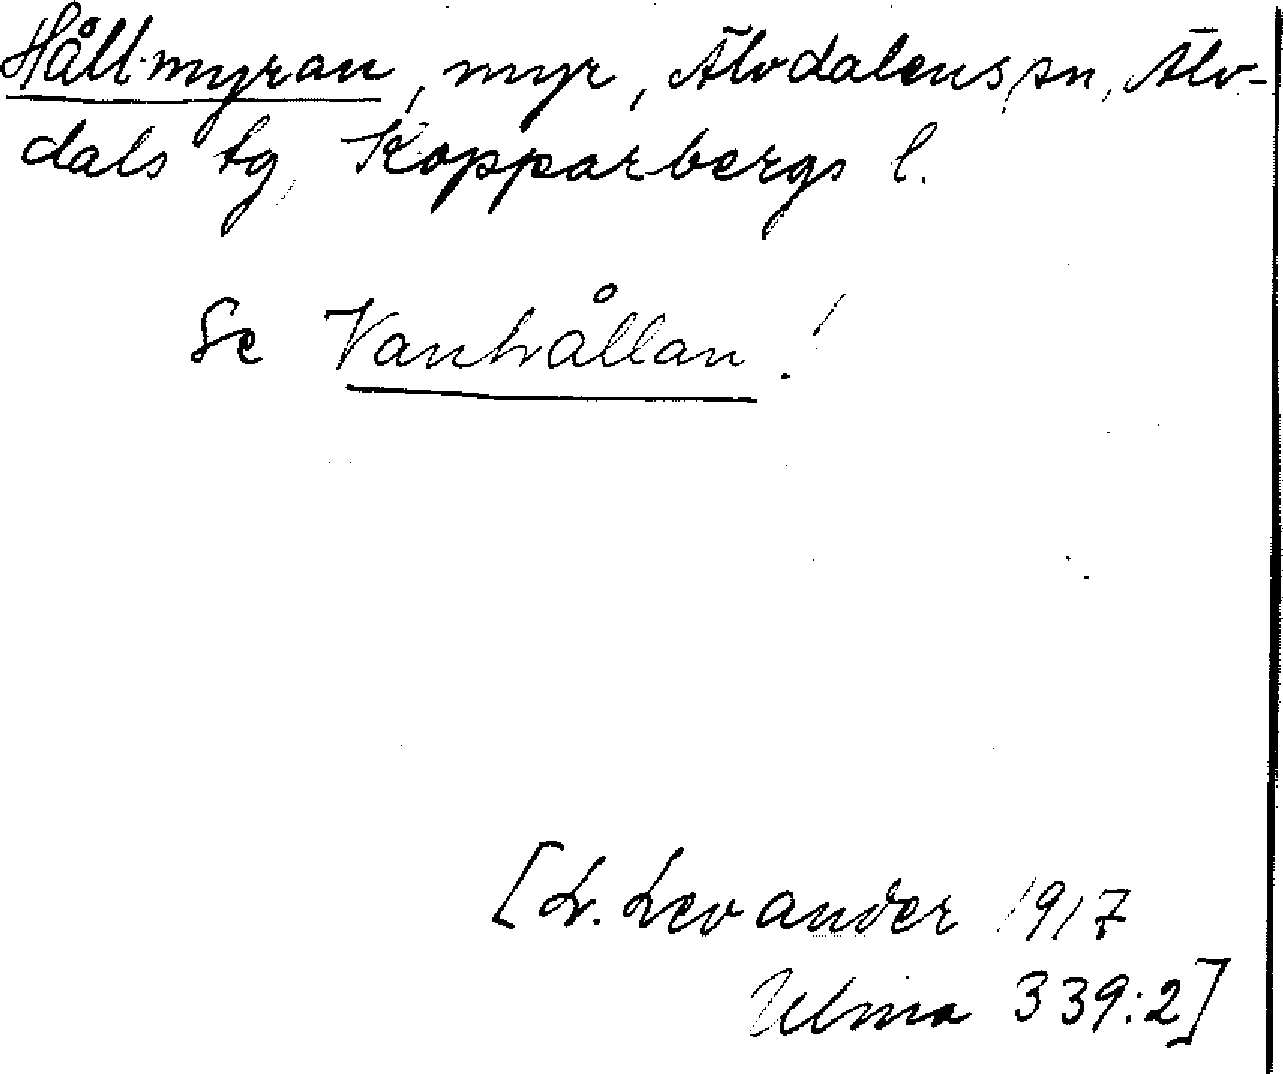 Hållmyran, myr, Älvdalens sn, Älv-
dals tg, Kopparbergs l.
Se Vanhållan!
[L. Levander 1917
Ulma 339:2]